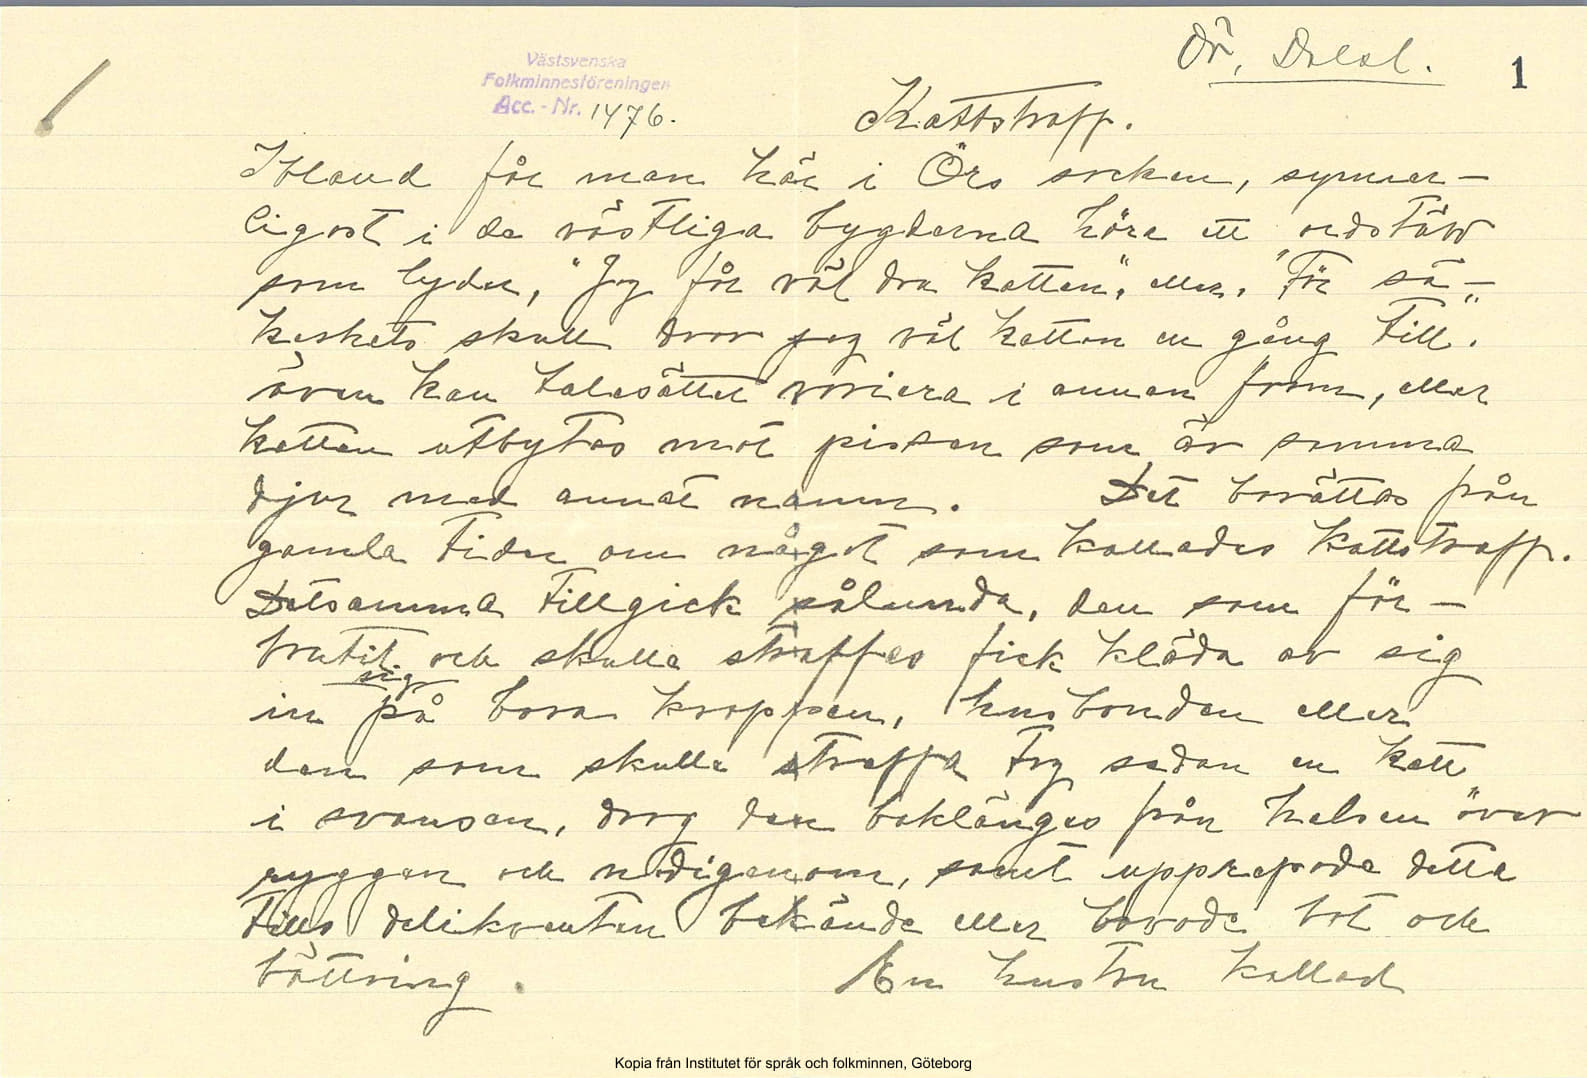 Ör, Dalsl.
1
Västsvenska
Folkminnesföreningen
Acc. - Nr. 1476.
Kattstraff.
Ibland får man här i Örs socken, synner-
ligast i de västliga bygderna höra ett ordstäv
som lyder, "Jag får väl dra katten", eller, "För sä-
kerhets skull drar jag väl katten en gång till".
även kan talesättet variera i annan form, eller
katten utbytas mot pissen som är samma
djur med annat namn. Det berättas från
gamla tider om något som kallades kattstraff.
Detsamma tillgick sålunda, den som för-
brutit sig och skulle straffas fick kläda av sig
in på bara kroppen, husbonden eller
den som skulle straffa tog sedan en katt
i svansen, drog den baklänges från halsen över
ryggen och nedigenom, samt upprepade detta
tills delikventen bekände eller lovade bot och
bättring. En hustru kallad
Kopia från Institutet för språk och folkminnen, Göteborg